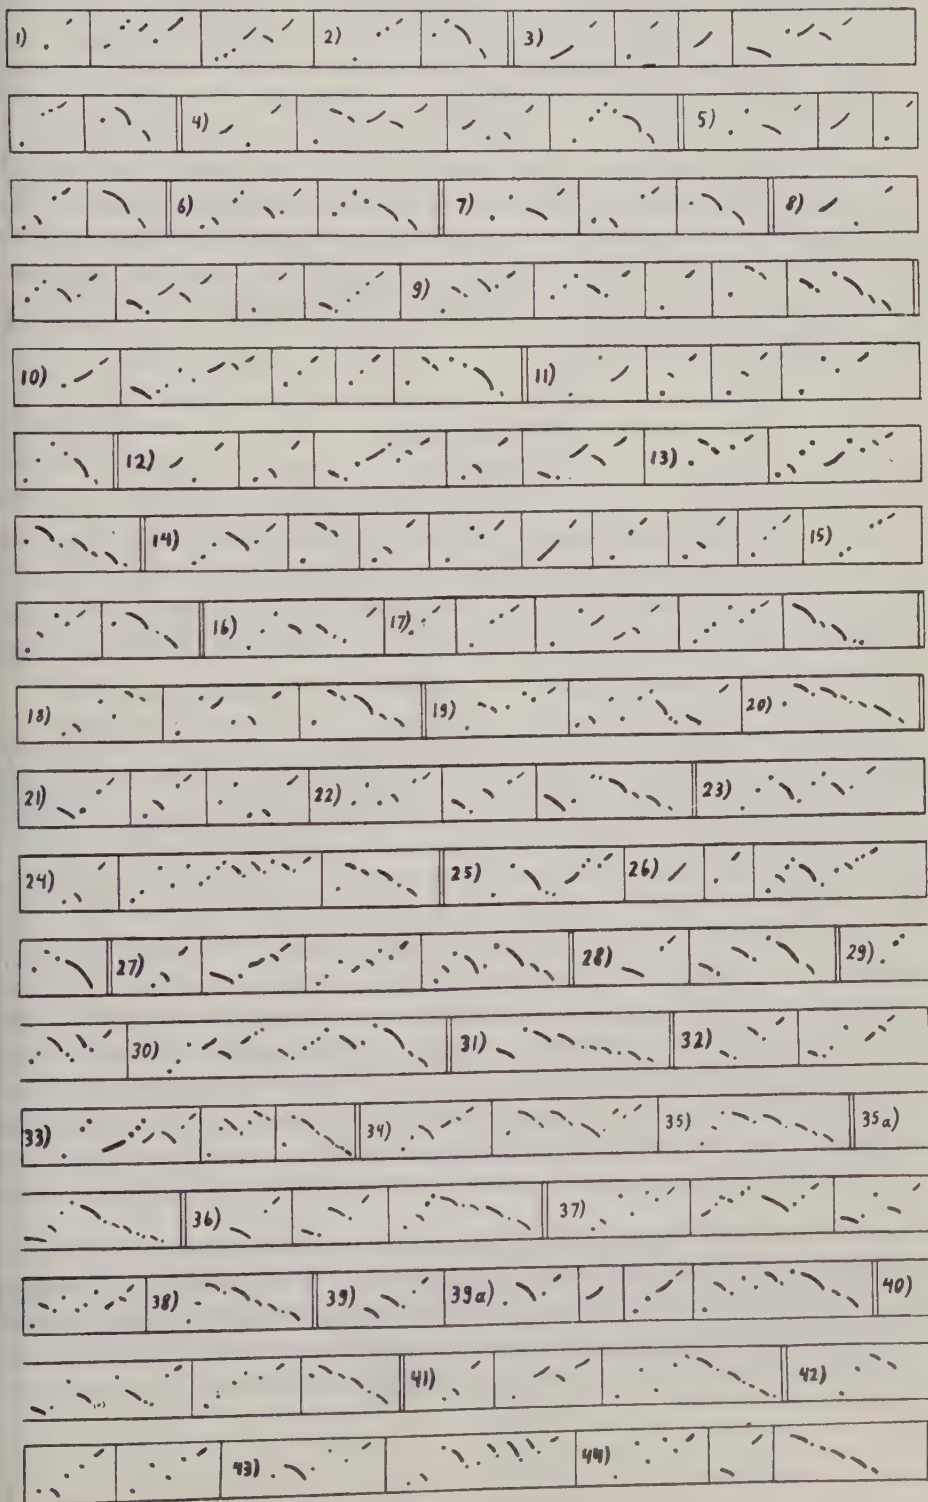 1) 2) 3)
4) 5)
6) 7) 8)
9)
10) 11)
12) 13)
14) 15)
16) 17)
18) 19) 20)
21) 22) 23)
24) 25) 26)
27) 28) 29)
30) 31) 32)
33) 34) 35) 35a)
36) 37)
38) 39) 39a) 40)
41) 42)
43) 44)